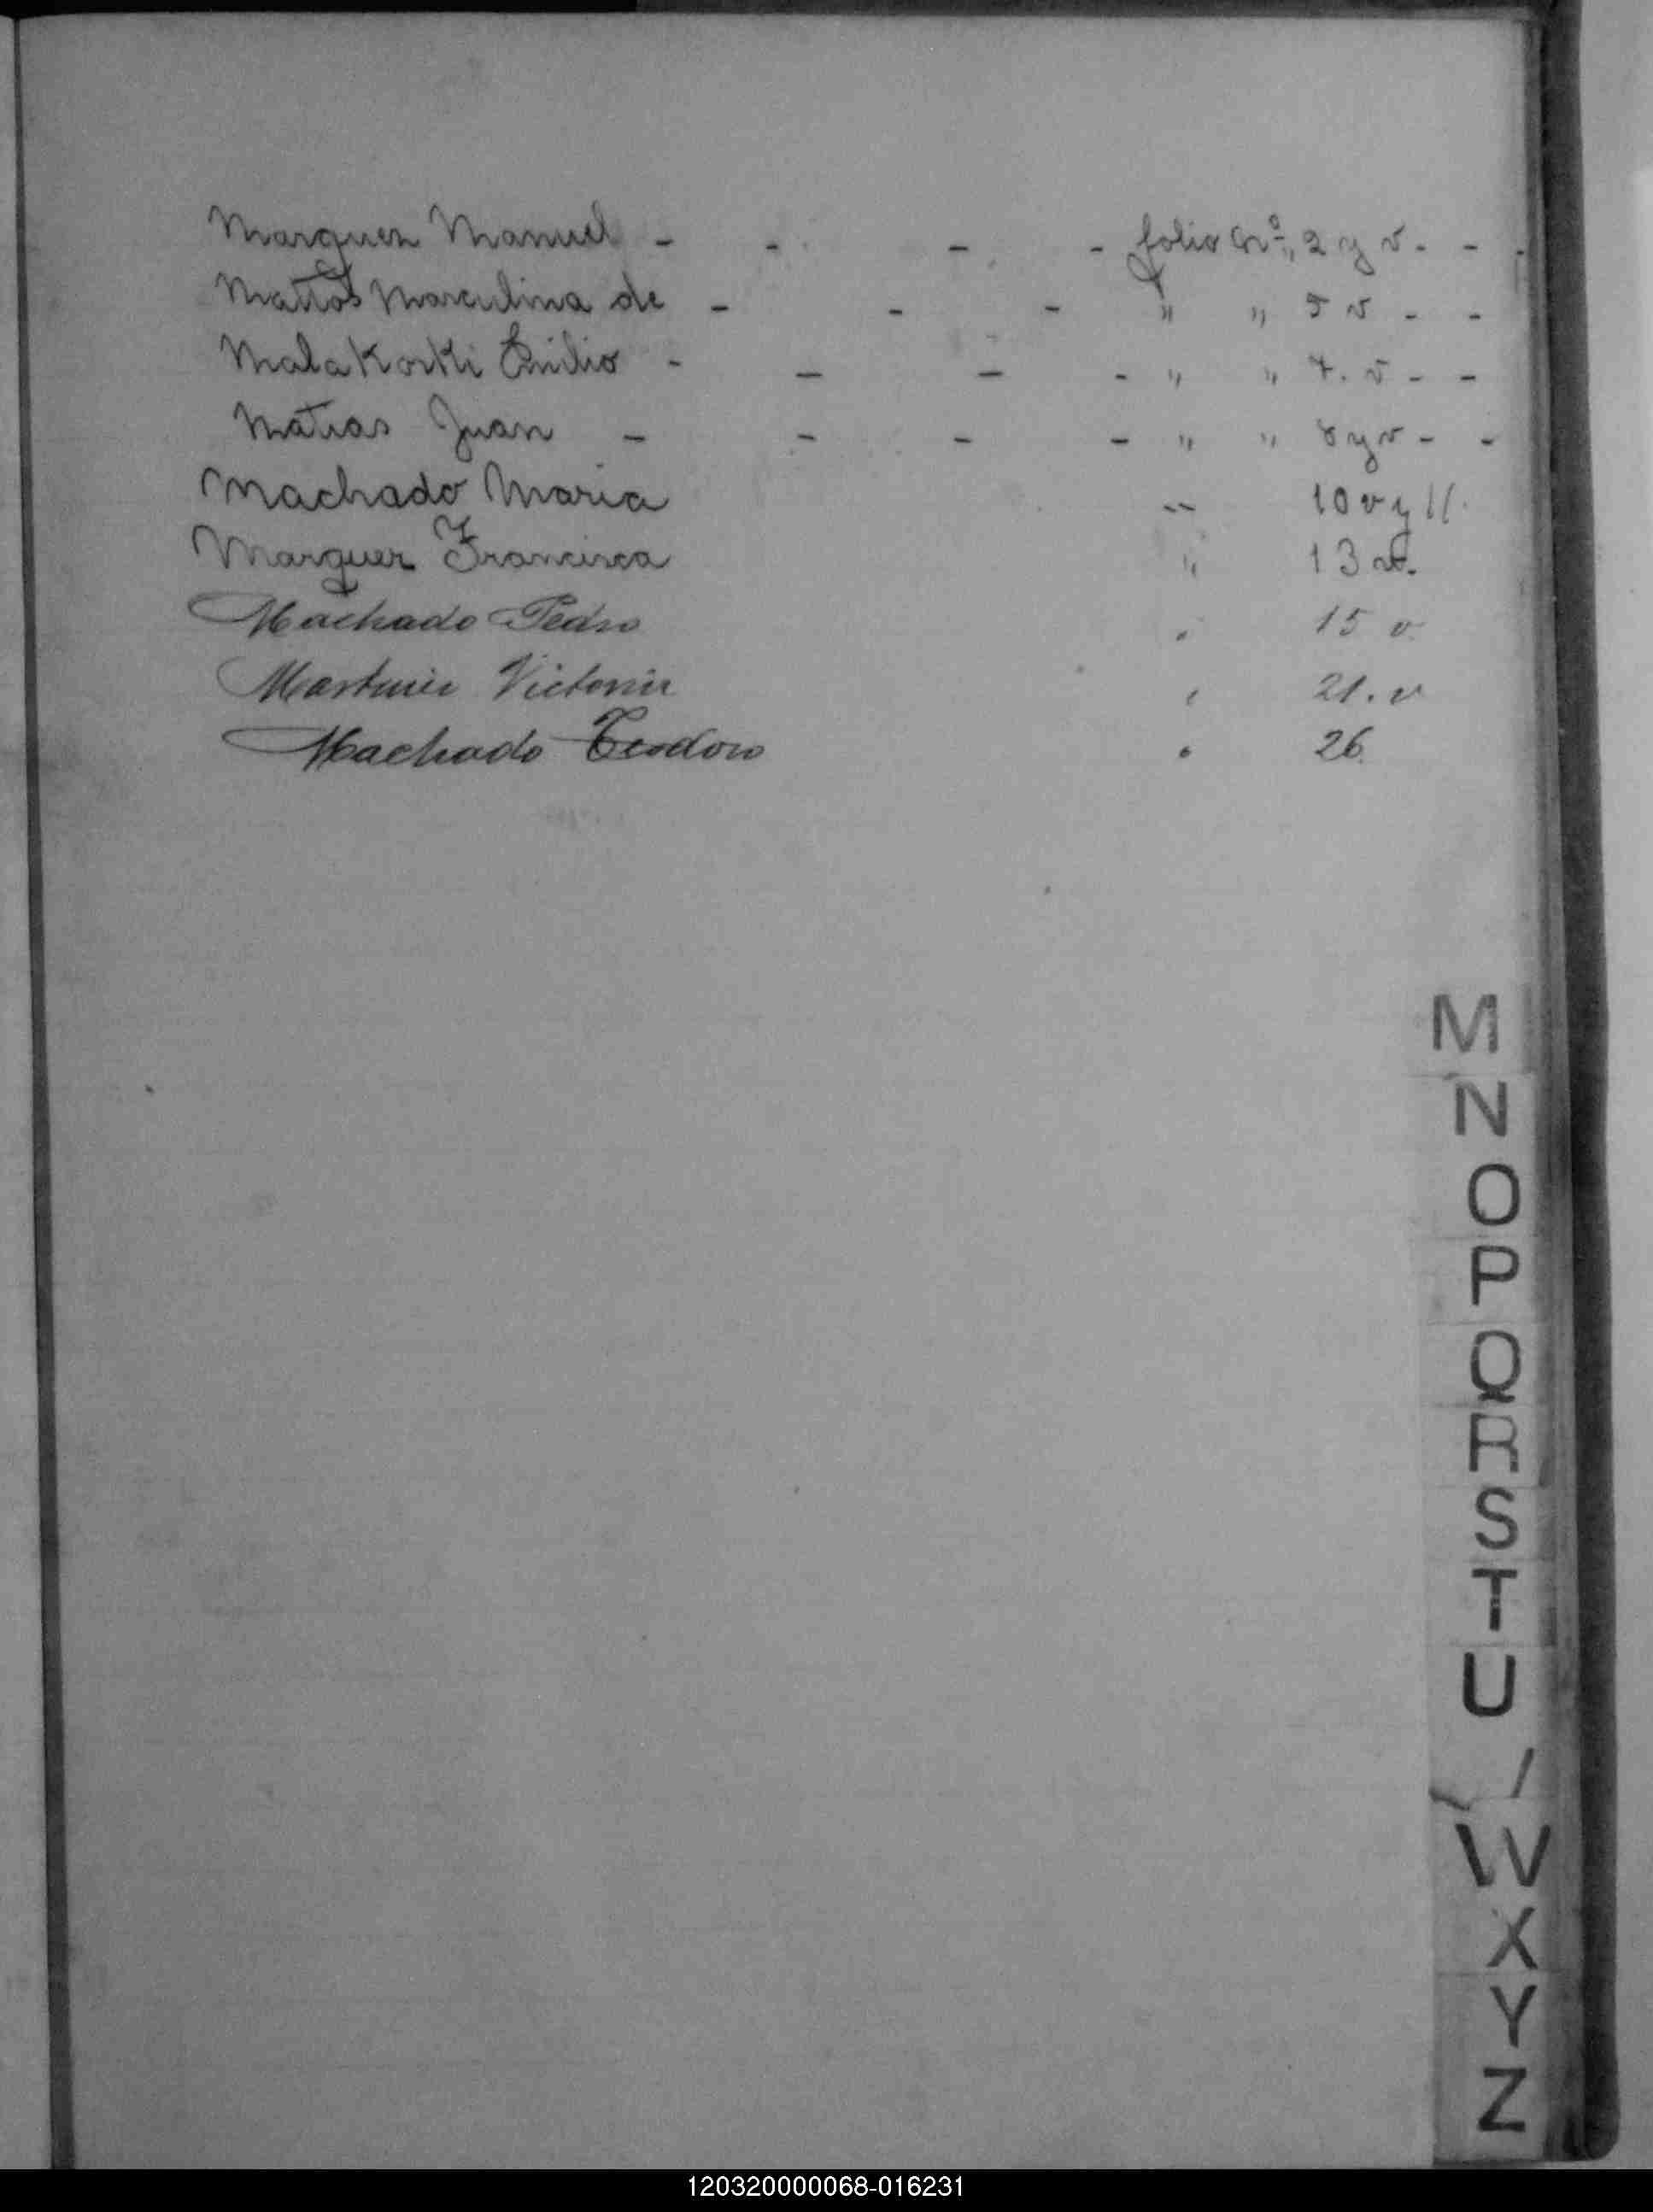 Marquez Manuel - - - - folio Nº ,, 2 y v. - -
Mattos Marculina de - - - " " 5 v - -
Malakoski Emilio - - - - " " 7. v - -
Matias Juan - - - - " " 8 y v - -
Machado Maria " 10 v y 11.
Marquez Francisca " 13 v.
Machado Pedro " 15 v.
Victoria 21. v
Machado Teodoro " 26.
M
N
O
P
Q
R
S
T
U
W
X
Y
Z
120320000068-016231